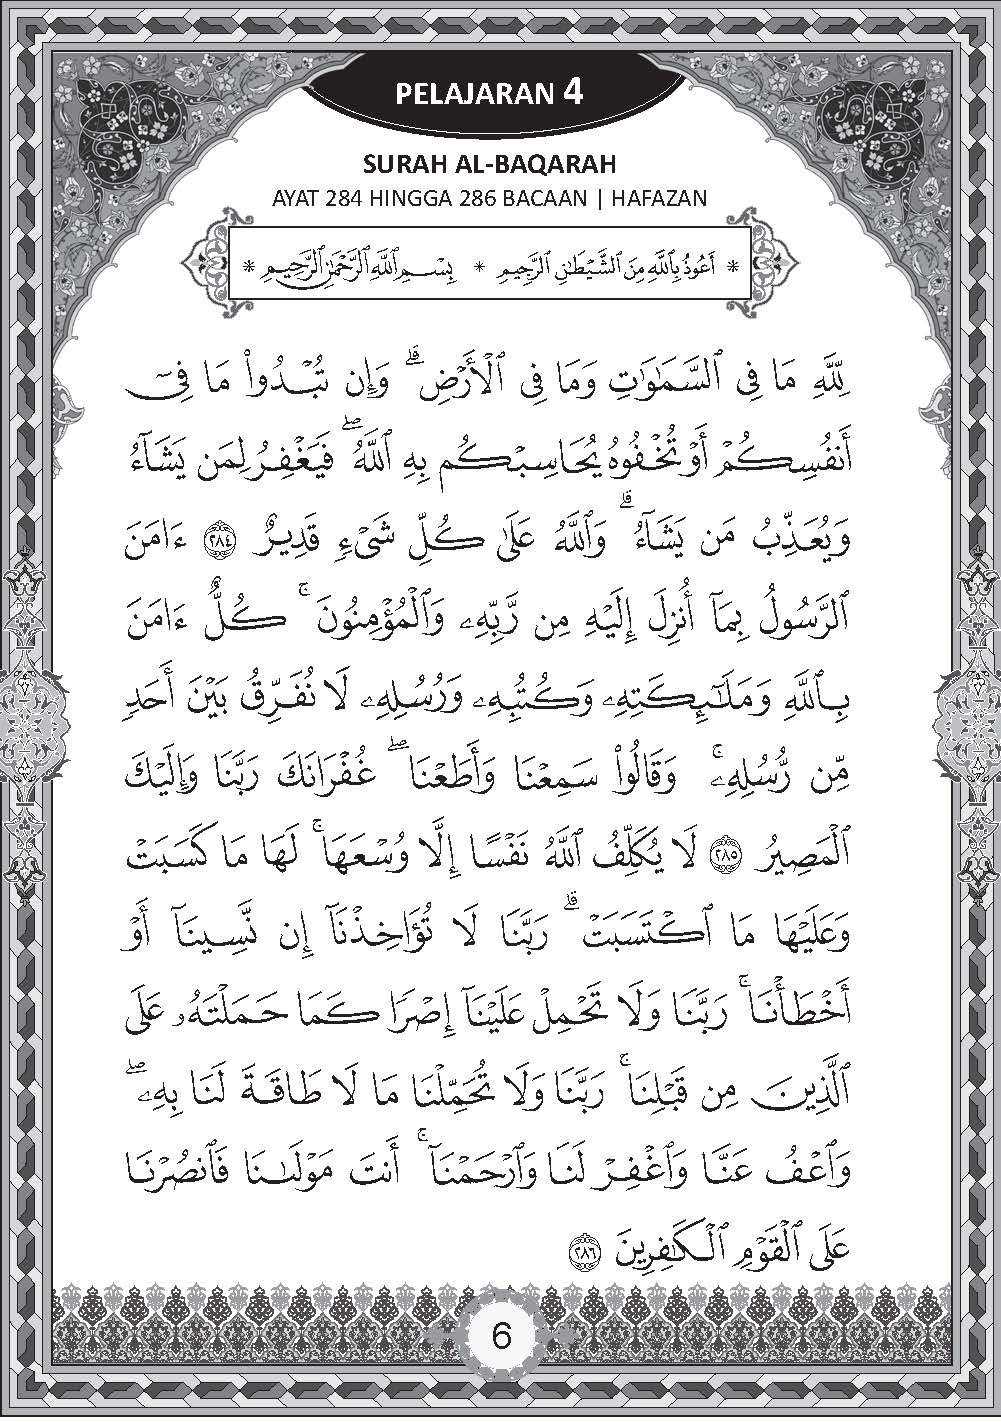 PELAJARAN 4
SURAH AL-BAQARAH
AYAT 284 HINGGA 286 BACAAN | HAFAZAN
* أَعُوذُ بِٱللَّهِ مِنَ ٱلشَّيْطَٰنِ ٱلرَّجِيمِ * بِسْمِ ٱللَّهِ ٱلرَّحْمَٰنِ ٱلرَّحِيمِ *
لِلَّهِ مَا فِى ٱلسَّمَٰوَٰتِ وَمَا فِى ٱلْأَرْضِ ۗ وَإِن تُبْدُوا۟ مَا فِىٓ
أَنفُسِكُمْ أَوْ تُخْفُوهُ يُحَاسِبْكُم بِهِ ٱللَّهُ ۖ فَيَغْفِرُ لِمَن يَشَآءُ
وَيُعَذِّبُ مَن يَشَآءُ ۗ وَٱللَّهُ عَلَىٰ كُلِّ شَىْءٍ قَدِيرٌ ٢٨٤ ءَامَنَ
ٱلرَّسُولُ بِمَآ أُنزِلَ إِلَيْهِ مِن رَّبِّهِۦ وَٱلْمُؤْمِنُونَ ۚ كُلٌّ ءَامَنَ
بِٱللَّهِ وَمَلَٰٓئِكَتِهِۦ وَكُتُبِهِۦ وَرُسُلِهِۦ لَا نُفَرِّقُ بَيْنَ أَحَدٍ
مِّن رُّسُلِهِۦ ۚ وَقَالُوا۟ سَمِعْنَا وَأَطَعْنَا ۖ غُفْرَانَكَ رَبَّنَا وَإِلَيْكَ
ٱلْمَصِيرُ ٢٨٥ لَا يُكَلِّفُ ٱللَّهُ نَفْسًا إِلَّا وُسْعَهَا ۚ لَهَا مَا كَسَبَتْ
وَعَلَيْهَا مَا ٱكْتَسَبَتْ ۗ رَبَّنَا لَا تُؤَاخِذْنَآ إِن نَّسِينَآ أَوْ
أَخْطَأْنَا ۚ رَبَّنَا وَلَا تَحْمِلْ عَلَيْنَآ إِصْرًا كَمَا حَمَلْتَهُۥ عَلَى
ٱلَّذِينَ مِن قَبْلِنَا ۚ رَبَّنَا وَلَا تُحَمِّلْنَا مَا لَا طَاقَةَ لَنَا بِهِۦ ۖ
وَٱعْفُ عَنَّا وَٱغْفِرْ لَنَا وَٱرْحَمْنَآ ۚ أَنتَ مَوْلَىٰنَا فَٱنصُرْنَا
عَلَى ٱلْقَوْمِ ٱلْكَٰفِرِينَ ٢٨٦
6